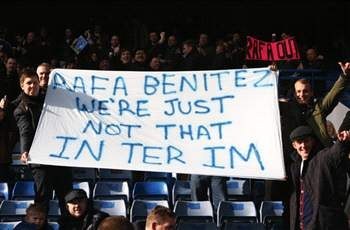 RAFA BENITEZ
WE'RE JUST
NOT THAT
IN TER IM
RAFA OUT